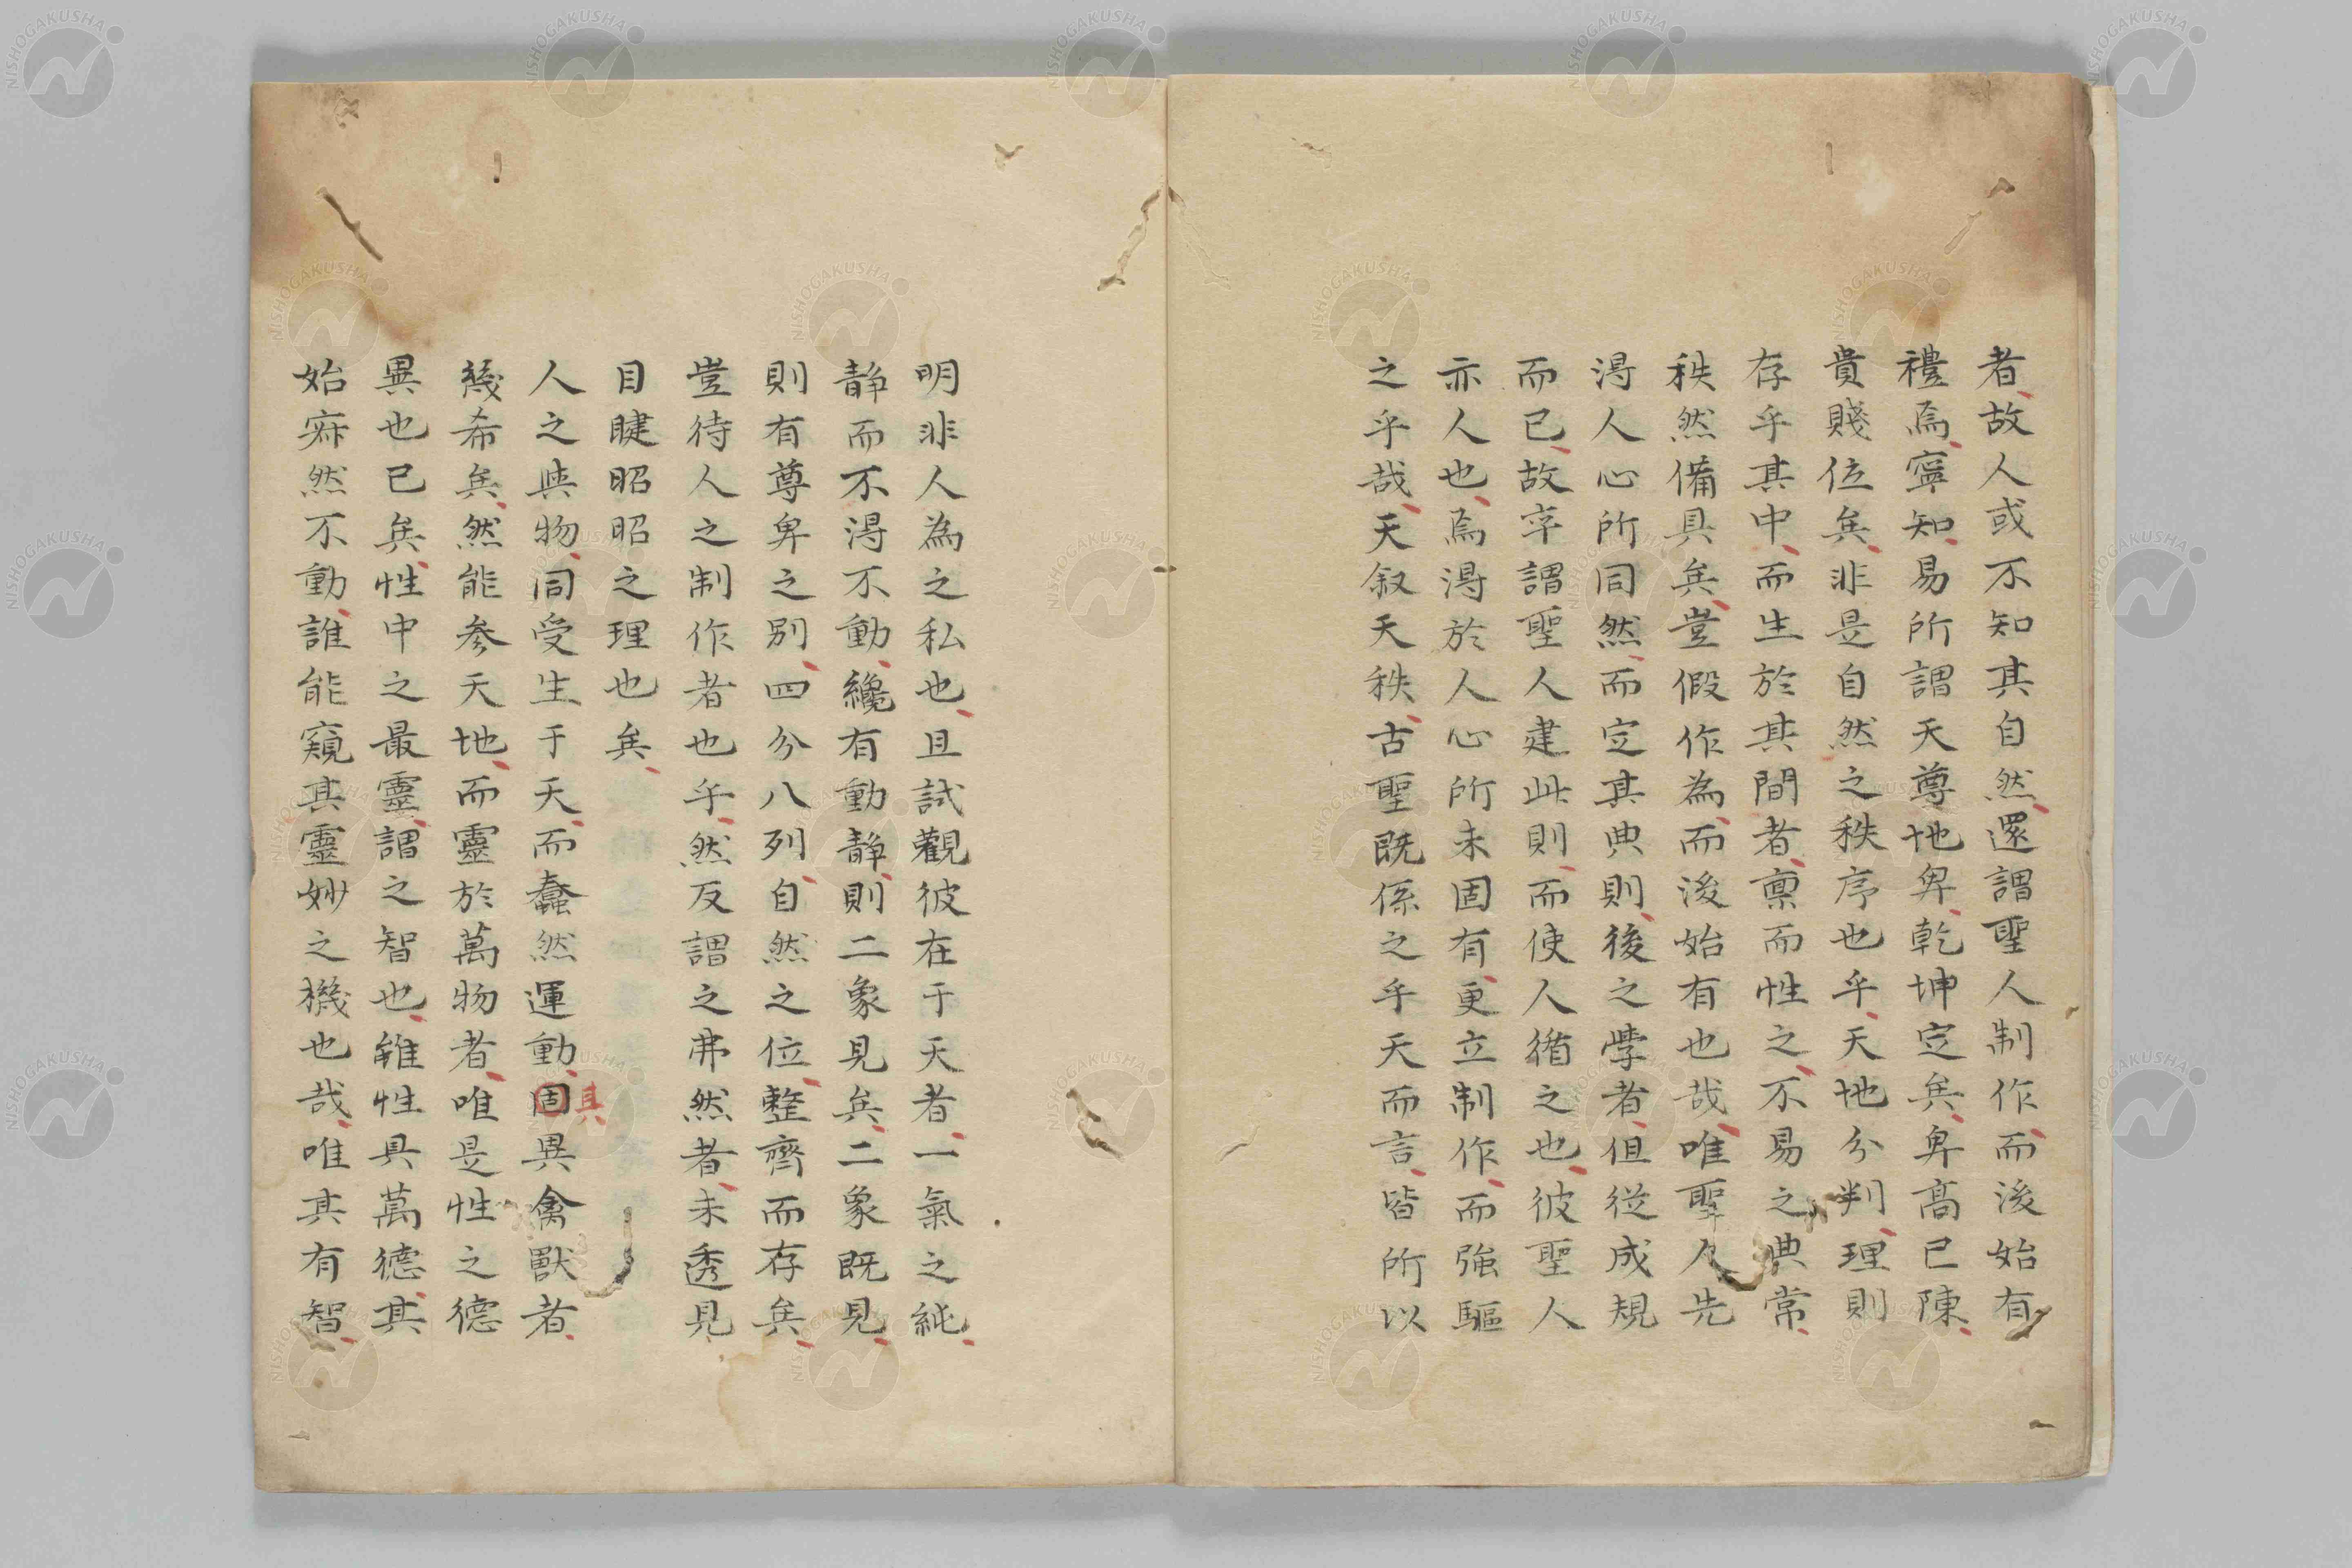 者、故人或不知其自然、還謂聖人制作、而後始有
禮焉、寧知、易所謂天尊地卑、乾坤定矣、卑高已陳、
貴賤位矣、非是自然之秩序也乎、天地分判、理則
存乎其中、而生於其間者、稟而性之、不易之典常、
秩然備具矣、豈假作為、而後始有也哉、唯聖人先
得人心所同然、而定其典則、後之學者、但從成規
而已、故卒謂聖人建此則、而使人循之也、彼聖人
亦人也、焉得於人心所未固有、更立制作、而強驅
之乎哉、天叙天秩、古聖既係之乎天而言、皆所以
明非人為之私也、且試觀彼在于天者、一氣之純、
靜而不得不動、纔有動靜、則二象見矣、二象既見、
則有尊卑之別、四分八列、自然之位、整齊而存矣、
豈待人之制作者也乎、然反謂之弗然者、未透見
目睫昭昭之理也矣、
人之與物、同受生于天、而蠢然運動、固異禽獸者、
其
幾希矣、然能參天地、而靈於萬物者、唯是性之德
異也已矣、性中之最靈、謂之智也、雖性具萬德、其
始寂然不動、誰能窺其靈妙之機也哉、唯其有智、
NISHOGAKUSHA